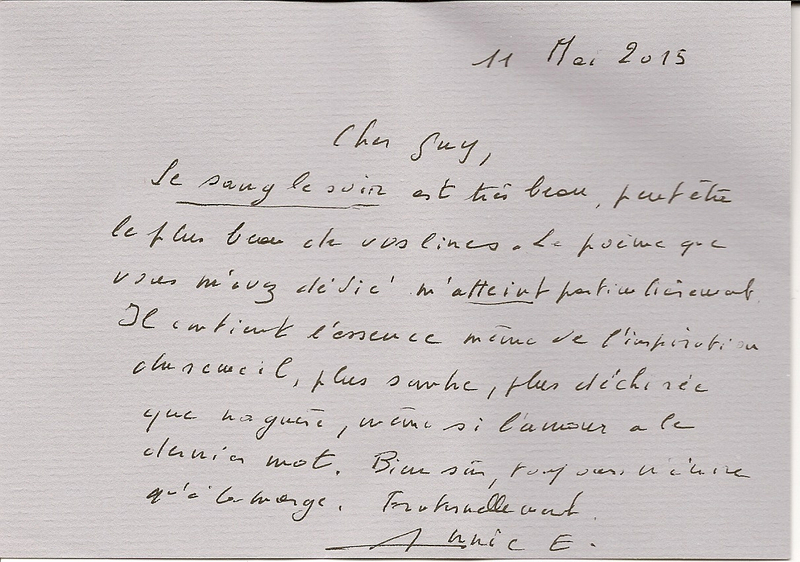 11 Mai 2015
Cher Guy,
Le sang le soir est très beau, peut être
le plus beau de vos livres. Le poème que
vous m'avez dédié m'atteint particulièrement.
Il contient l'essence même de l'inspiration
du recueil, plus sombre, plus déchirée
que naguère, même si l'amour a le
dernier mot. Bien sûr, toujours n'écrire
qu'à la marge. Fraternellement.
Annie E.